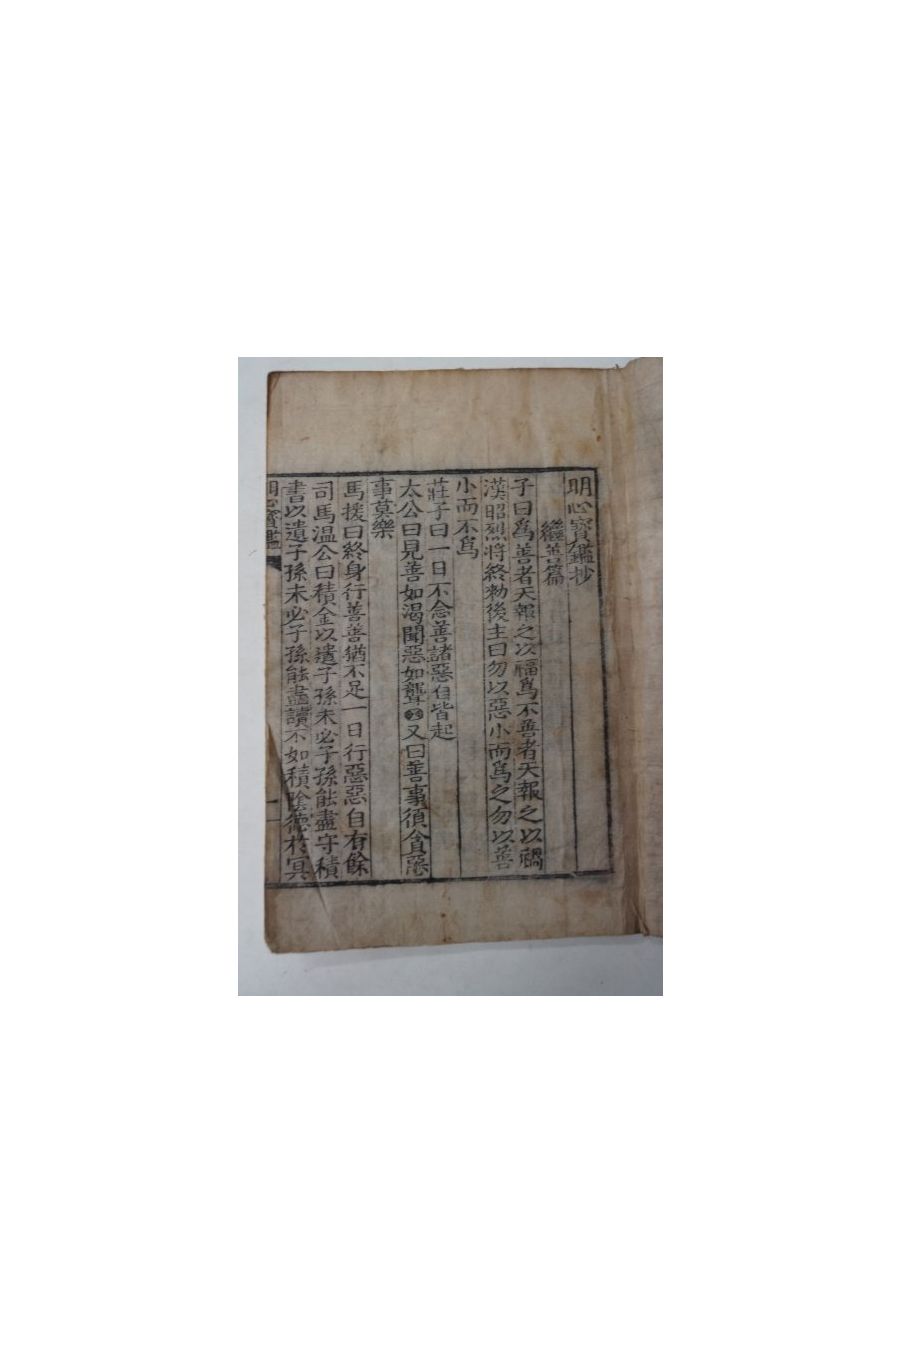 明心寶鑑抄
繼善篇
子曰爲善者天報之以福爲不善者天報之以禍
漢昭烈將終勑後主曰勿以惡小而爲之勿以善
小而不爲
莊子曰一日不念善諸惡自皆起
太公曰見善如渴聞惡如聾又曰善事須貪惡
事莫樂
馬援曰終身行善善猶不足一日行惡惡自有餘
司馬溫公曰積金以遺子孫未必子孫能盡守積
書以遺子孫未必子孫能盡讀不如積陰德於冥
明心寶鑑 一